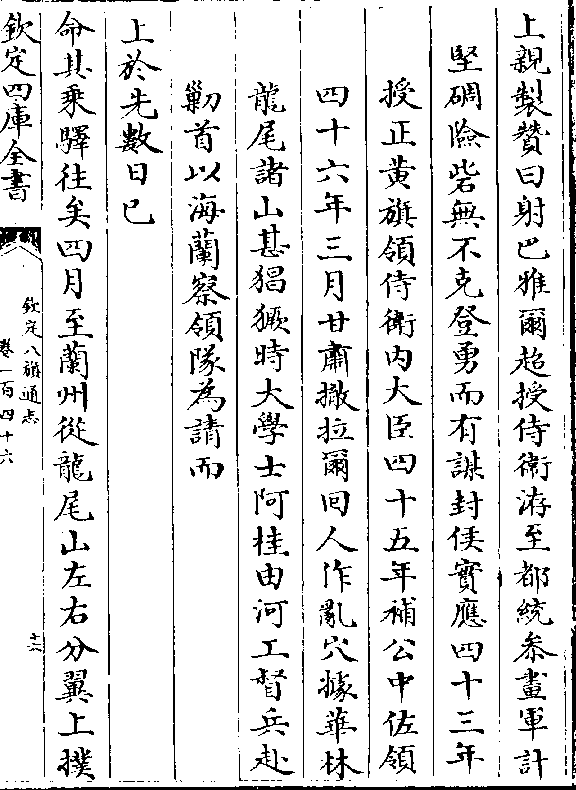 上親製贊曰射巴雅爾超授侍衛洊至都統叅畫軍計
堅碉險砦無不克登勇而有謀封侯實應四十三年
授正黄旗領侍衛内大臣四十五年補公中佐領
四十六年三月甘肅撒拉爾回人作亂穴據華林
龍尾諸山甚猖獗時大學士阿桂由河工督兵赴
勦首以海蘭察領隊為請而
上於先數日已
命其乘驛往矣四月至蘭州從龍尾山左右分翼上撲
欽定四庫全書
欽定八旗通志
卷一百四十六
十六